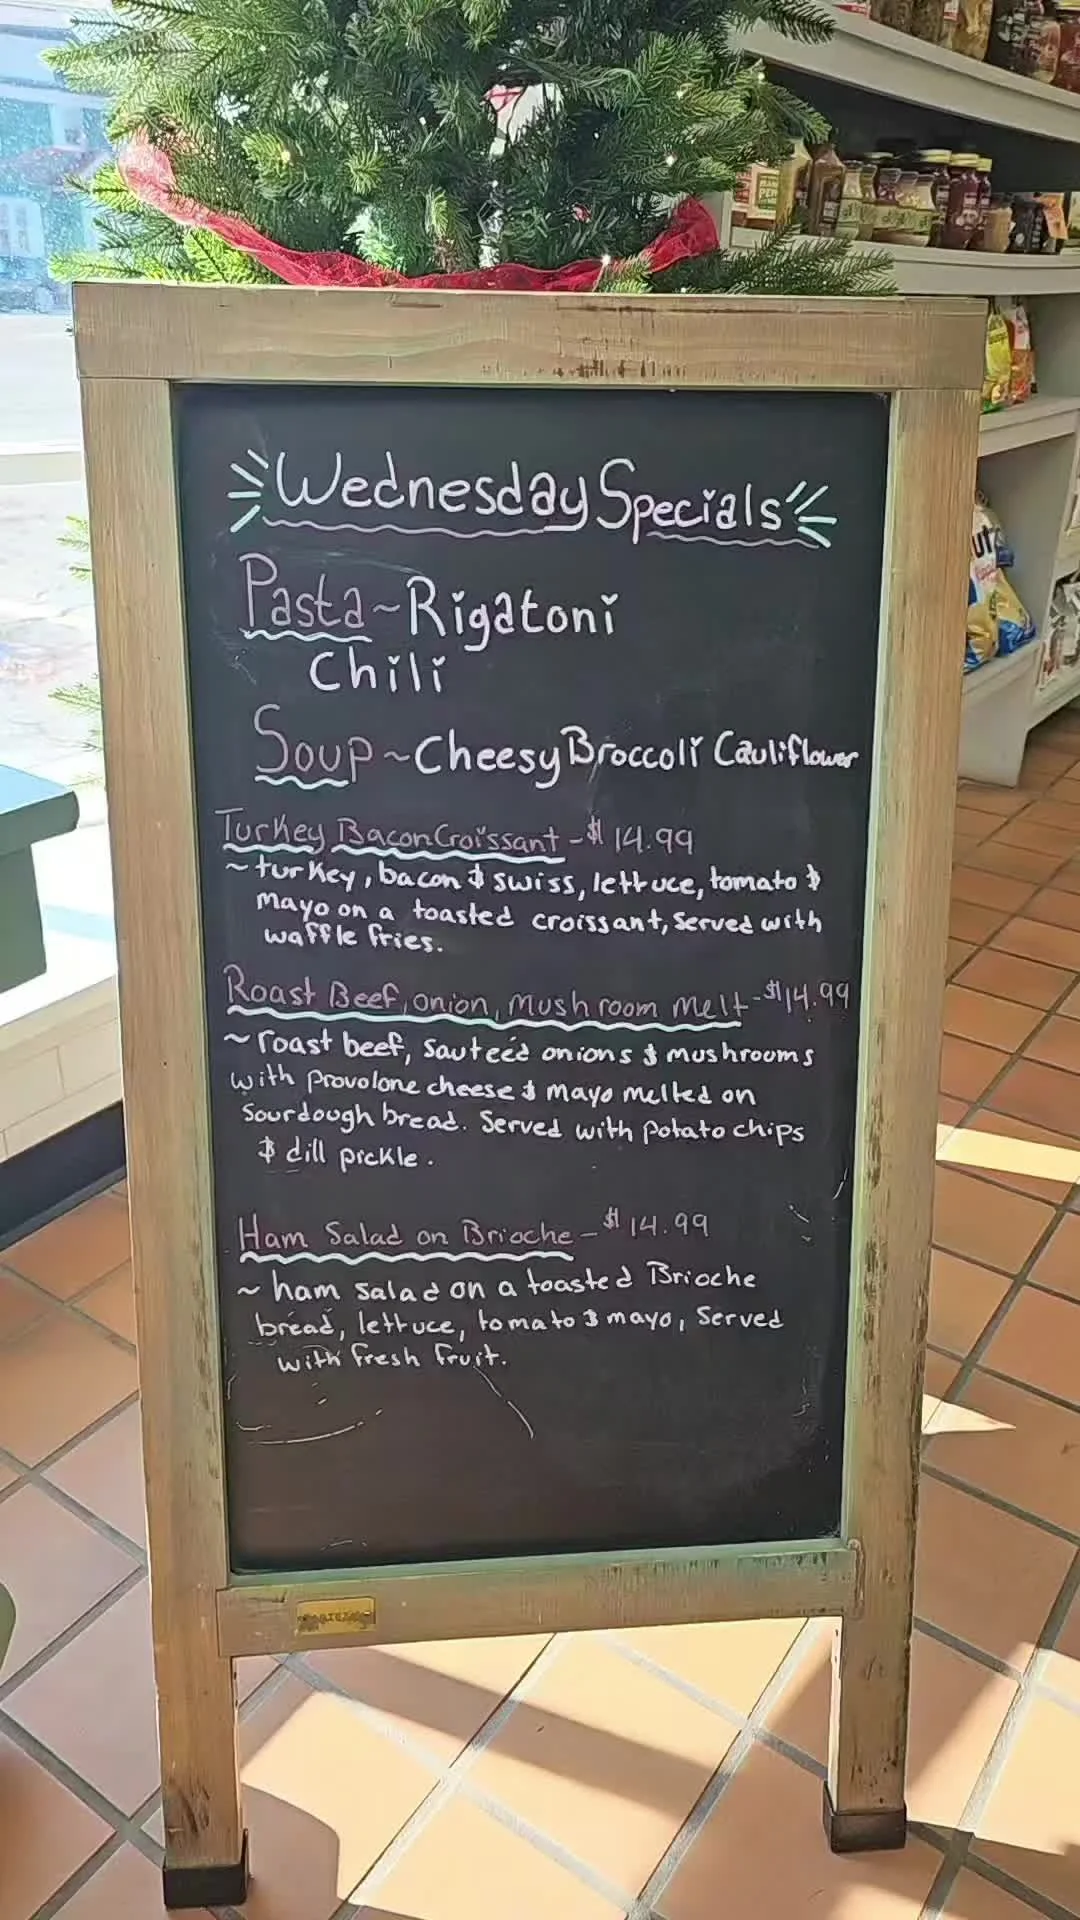 Wednesday Specials
Pasta~Rigatoni
Chili
Soup~Cheesy Broccoli Cauliflower
Turkey Bacon Croissant - $14.99
~turkey, bacon & swiss, lettuce, tomato &
mayo on a toasted croissant, served with
waffle fries.
Roast Beef, onion, mushroom melt - $14.99
~roast beef, sauteéd onions & mushrooms
with provolone cheese & mayo melted on
sourdough bread. Served with potato chips
& dill pickle.
Ham Salad on Brioche - $14.99
~ ham salad on a toasted Brioche
bread, lettuce, tomato & mayo, Served
with fresh fruit.